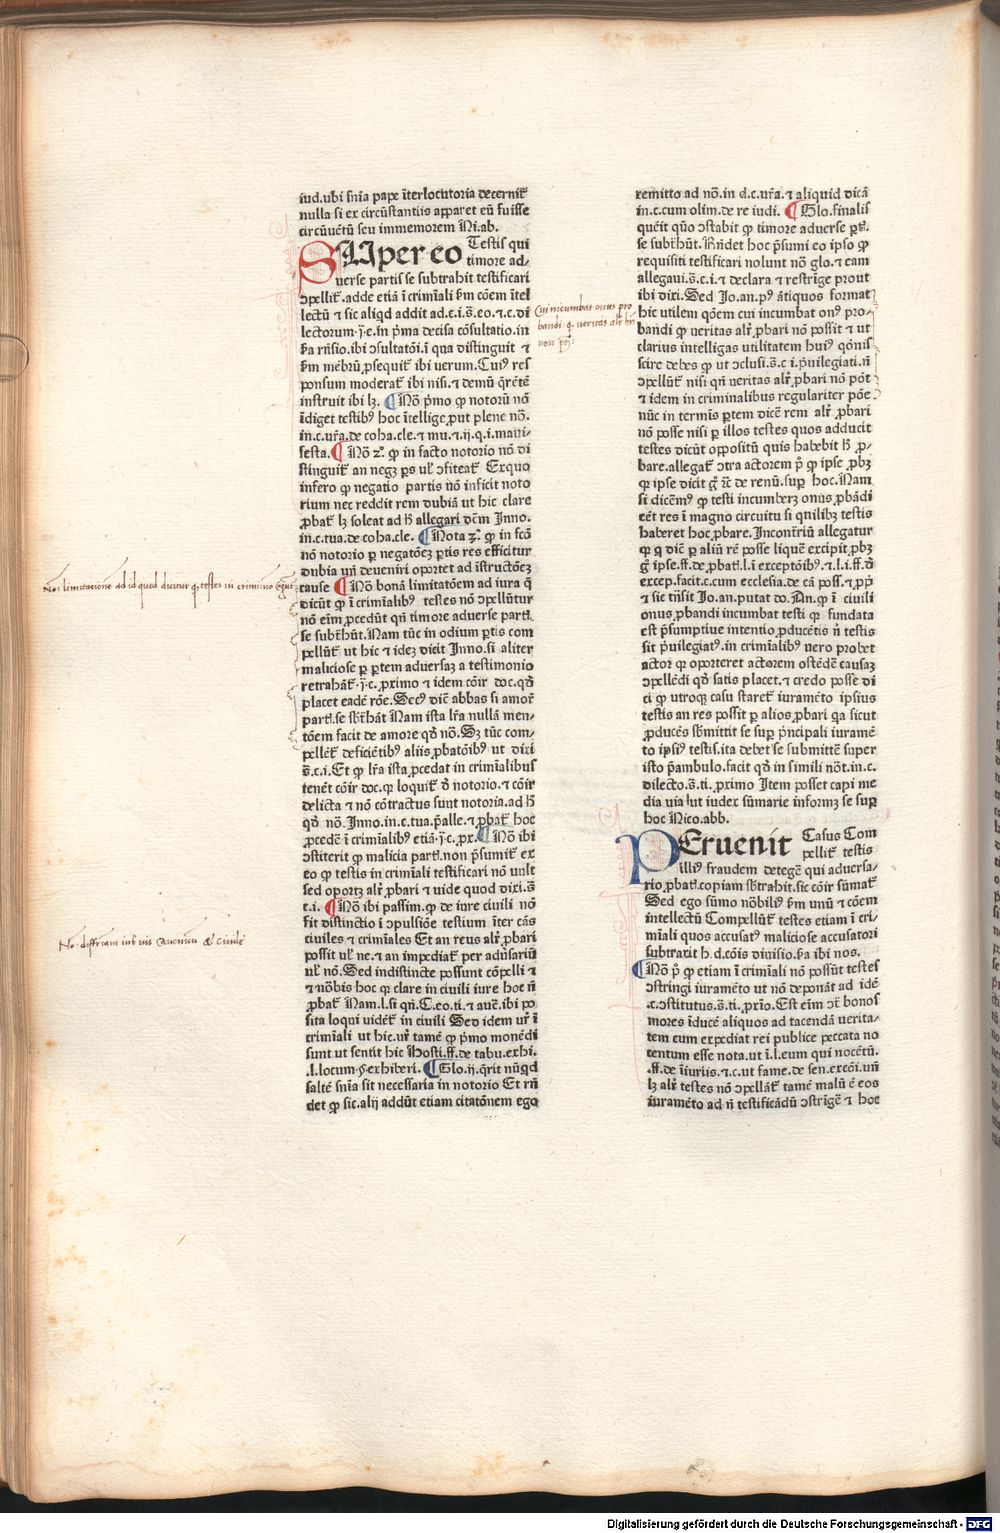 iud.ubi sn̄ia pape īterlocutoria decernit᷑
nulla si ex circūstantiis apparet eū fuisse
circūuētū seu immemorem Ni.ab.
SUper eo Testis qui
timore ad⸗
uerse partis se subtrahit testificari
ↄpellit᷑.adde etiā ī crimīali ẜm cōem ītel
lectū ⁊ sic aliqd addit ad.c.i.s̄.eo.⁊.c.di
lectorum.j̄.e.in p̄ma decisa cōsultatio.in
ẜa rn̄sio.ibi ↄsultatōi.ī qua distinguit ⁊
ẜm mēbrū ꝓsequit᷑ ibi uerum.Cuiꝰ res
ponsum moderat᷑ ibi nisi.⁊ demū q̄rētē
instruit ibi lꝫ. ¶ Nō p̄mo ꝙ notorū nō
īdiget testibꝰ hoc ītellige,put plene nō.
in.c.ur̄a.de coha.cle.⁊ mu.⁊ ij.q.i.mani⸗
festa. ¶ Nō 2ͦ. ꝙ in facto notorio nō di
stinguit᷑ an neget ꝑs ul᷑ ↄfiteat᷑ Exquo
infero ꝙ negatio partis nō inficit noto
rium nec reddit rem dubiā ut hic clare
ꝓbat᷑ lꝫ soleat ad h̄ allegari dc̄m Inno.
in.c.tua.de coha.cle. ¶ Nota 3ͦ. ꝙ in fc̄o
nō notorio ꝑ negatōeꝫ ꝑtis res efficitur
dubia un̄ deueniri oportet ad īstructōeꝫ
cause ¶ Nō bonā limitatōem ad iura q̄
dicūt ꝙ ī crimīalibꝰ testes nō ↄpellūtur
nō eīm ꝓcedūt qn̄ timore aduerse part᷑.
se subtr̄hūt.Nam tūc in odium ꝑtis com
pellūt᷑ ut hic ⁊ ideꝫ dicit Inno.si aliter
maliciose ꝑ ꝑtem aduersaꝫ a testimonio
retrahāt᷑.j̄.c.ꝓximo ⁊ idem cōir doc.qd̄
placet eadē rōe.Secꝰ dicē abbas si amor᷑
part᷑.se sb̄tr̄hāt Nam ista lr̄a nullā men⸗
tōem facit de amore qd̄ nō.Sꝫ tūc com⸗
pellēt᷑ deficiētibꝰ aliis ꝓbatōibꝰ ut dixi
s̄.c.i.Et ꝙ lr̄a ista ꝓcedat in crimīalibus
tenēt cōir doc.qꝛ loquit᷑ d̄ notorio.⁊ cōir
delicta ⁊ nō cōtractus sunt notoria.ad h̄
qd̄ nō.Inno.in.c.tua.p̄alle.⁊ ꝓbat᷑ hoc
ꝓcedē ī crimīalibꝰ etiā.j̄.c.ꝓx. ¶ Nō ibi
ↄstiterit ꝙ malicia part᷑.non p̄sumit᷑ ex
eo ꝙ testis in crimīali testificari nō uult
sed oportꝫ alr̄ ꝓbari ⁊ uide quod dixi.s̄
c.i. ¶ Nō ibi passim.ꝙ de iure ciuili nō
fit distinctio ī ↄpulsiōe testium īter cās
ciuiles ⁊ crimīales Et an reus alr̄ ꝓbari
possit ul᷑ ne.⁊ an impediat᷑ per adūsariū
ul᷑ nō.Sed indistincte possunt cōpelli ⁊
⁊ nōbis hoc ꝙ clare in ciuili iure hoc n̄
ꝓbat᷑ Nam.l.si qn̄.C.eo.ti.⁊ auct̄.ibi po
sita loqui uidet᷑ in ciuili Sed idem ur̄ ī
crimīali ut hic.ur̄ tamē ꝙ p̄mo monēdi
sunt ut sentit hic Hosti.ff.de tabu.exhi.
.l.locum.§.exhiberi. ¶ Glo.ij.q̄rit nūqd
saltē sn̄ia sit necessaria in notorio Et rn̄
det ꝙ sic.alij addūt etiam citatōnem ego
remitto ad nō.in d.c.ur̄a.⁊ aliquid dicā
in.c.cum olim.de re iudi. ¶ Glo.finalis
querit quō ↄstabit ꝙ timore aduerse ꝑt᷑.
se subtr̄hūt.Rn̄det hoc p̄sumi eo ipso ꝙ
requisiti testificari nolunt nō glo.⁊ eam
allegaui.s̄.c.i.⁊ declara ⁊ restrīge prout
ibi dixi.Sed Jo.an.pꝰ ātiquos format
hic utilem qōem cui incumbat onꝰ pro⸗
bandi ꝙ ueritas alr̄ ꝓbari nō possit ⁊ ut
clarius intelligas utilitatem huiꝰ qōnis
scire debes ꝙ ut ↄclusi.s̄.c i.p̄uilegiati.n̄
ↄpellūt᷑ nisi qn̄ ueritas alr̄ ꝓbari nō pōt
⁊ idem in criminalibus regulariter pōe
nūc in termīs ꝑtem dicē rem alr̄ ꝓbari
nō posse nisi ꝑ illos testes quos adducit
testes dicūt oppositū quis habebit h̄ ꝓ⸗
bare.allegat᷑ ↄtra actorem p̄ ꝙ ipse ꝓbꝫ
ꝙ ipse dicit g̊ ⁊c̄ de renū.suꝑ hoc.Nam
si dicēmꝰ ꝙ testi incumberꝫ onus ꝓbādi
eēt res ī magno circuitu si qnilibꝫ testis
haberet hoc ꝓbare.Incontr̄iū allegatur
ꝙ q̄ dic̄ ꝑ aliū rē posse liquē excipit ꝓbꝫ
g̊ ipse.ff.de ꝓbat᷑.l.ī exceptōibꝰ.⁊.l.i.ff.d̄
excep.facit.c.cum ecclesia.de cā poss.⁊ ꝓp̄
⁊ sic tn̄sit Jo.an.putat do.An.ꝙ ī ciuili
onus ꝓbandi incumbat testi qꝛ fundata
est p̄sumptiue intentio ꝓducētis n̄ testis
sit p̄uilegiatꝰ.in crimīalibꝰ uero probet
actor qꝛ oporteret actorem ostēdē causaꝫ
ↄpellēdi qd̄ satis placet.⁊ credo posse di
ci ꝙ utroqꝫ casu staret᷑ iuramēto ipsius
testis an res possit ꝑ alios ꝓbari qꝛ sicut
ꝓducēs sb̄mittit se suꝑ p̄ncipali iuramē
to ipsiꝰ testis.ita debet se submittere super
isto p̄ambulo.facit qd̄ in simili nōt.in.c.
dilecto.s̄.ti.ꝓximo Item posset capi me
dia uia ut iudex sūmarie informꝫ se suꝑ
hoc Nico.abb.
PEruenit Casus Com
pellit᷑ testis
illiꝰ fraudem detegē qui aduersa⸗
rio ꝓbat᷑.copiam sb̄trahit.sic cōir sūmat᷑
Sed ego sūmo nōbiliꝰ ẜm unū ⁊ cōem
intellectū Compellūt᷑ testes etiam ī cri⸗
mīali quos accusatꝰ maliciose accusatori
subtraxit h.d.cōis diuisio.ẜa ibi nos.
¶ Nō p̊ ꝙ etiam ī crimīali nō possūt testes
ↄstringi iuramēto ut nō deponāt ad idē
.c.ↄstitutus.s̄.ti.ꝓxīo.Est eīm ↄt᷑ bonos
mores īducē aliquos ad tacendā uerita⸗
tem cum expediat rei publice peccata no
centum esse nota.ut ī.l.eum qui nocētū.
.ff.de īiuriis.⁊.c.ut fame.de sen.excōi.un̄
lꝫ alr̄ testes nō ↄpellāt᷑ tamē malū ē eos
iuramēto ad n̄ testificādū ↄstrīgē ⁊ hoc
Cui incumbat onus pro
bandi ꝙ ueritas alr̄
No: limitacione ad id quod dicitur ꝙ testes in crimino
No: differiam int ius Canonicu & Ciuile
Digitalisierung gefördert durch die Deutsche Forschungsgemeinschaft - DFG